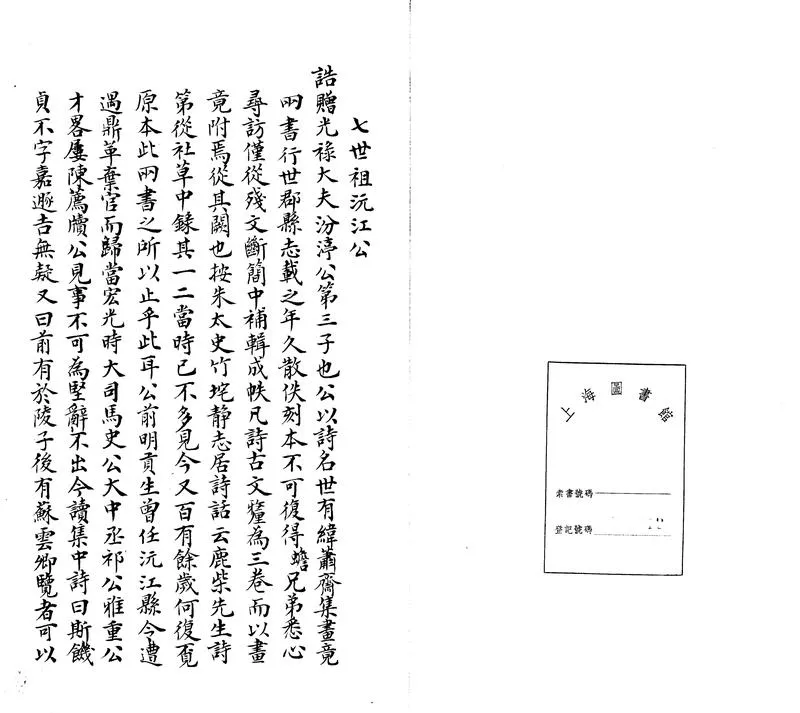 七世祖沅江公
誥贈光祿大夫汾渟公第三子也公以詩名世有緯蕭齋集畫竟
兩書行世郡縣志載之年久散佚刻本不可復得蟾兄弟悉心
尋訪僅從殘文斷簡中補輯成帙凡詩古文釐為三卷而以畫
竟附焉從其闕也按朱太史竹垞静志居詩話云鹿柴先生詩
第從社草中錄其一二當時已不多見今又百有餘歲何復覔
原本此兩書之所以止乎此耳公前明貢生曾任沅江縣令遭
遇鼎革棄官而歸當宏光時大司馬史公大中丞祁公雅重公
才畧屢陳薦牘公見事不可為堅辭不出今讀集中詩曰斯饑
貞不字嘉遯吉無疑又曰前有於陵子後有蘇雲卿覽者可以
上海圖書館
索書號碼
登記號碼